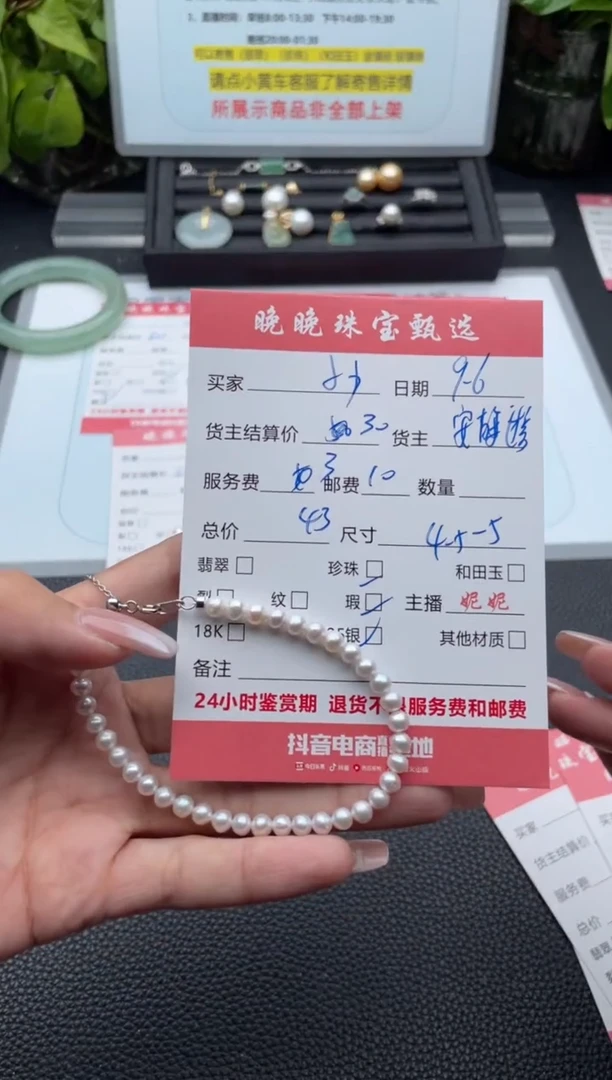 1、直播时间：早班8:00-13:30 下午14:00-19:30
晚班20:00-01:30
请点小黄车客服了解寄售详情
所展示商品非全部上架
晚晚珠宝甄选
买家 日期 9-6
货主结算价 30 货主 安静
服务费 3 邮费 10 数量
总价 43 尺寸 4.5-5
翡翠 珍珠 和田玉
裂 纹 瑕 主播 妮妮
18K 银 其他材质
备注
24小时鉴赏期 退货不 服务费和邮费
抖音电商 地
买家
货主结算
服务费
总价